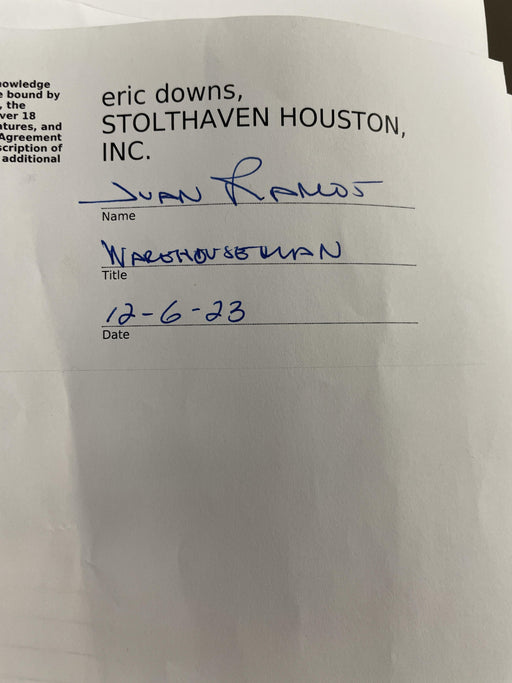 nowledge
e bound by
, the
ver 18
atures, and
Agreement
scription of
additional
eric downs,
STOLTHAVEN HOUSTON,
INC.
JUAN RAMOS
Name
WAREHOUSEMAN
Title
12-6-23
Date